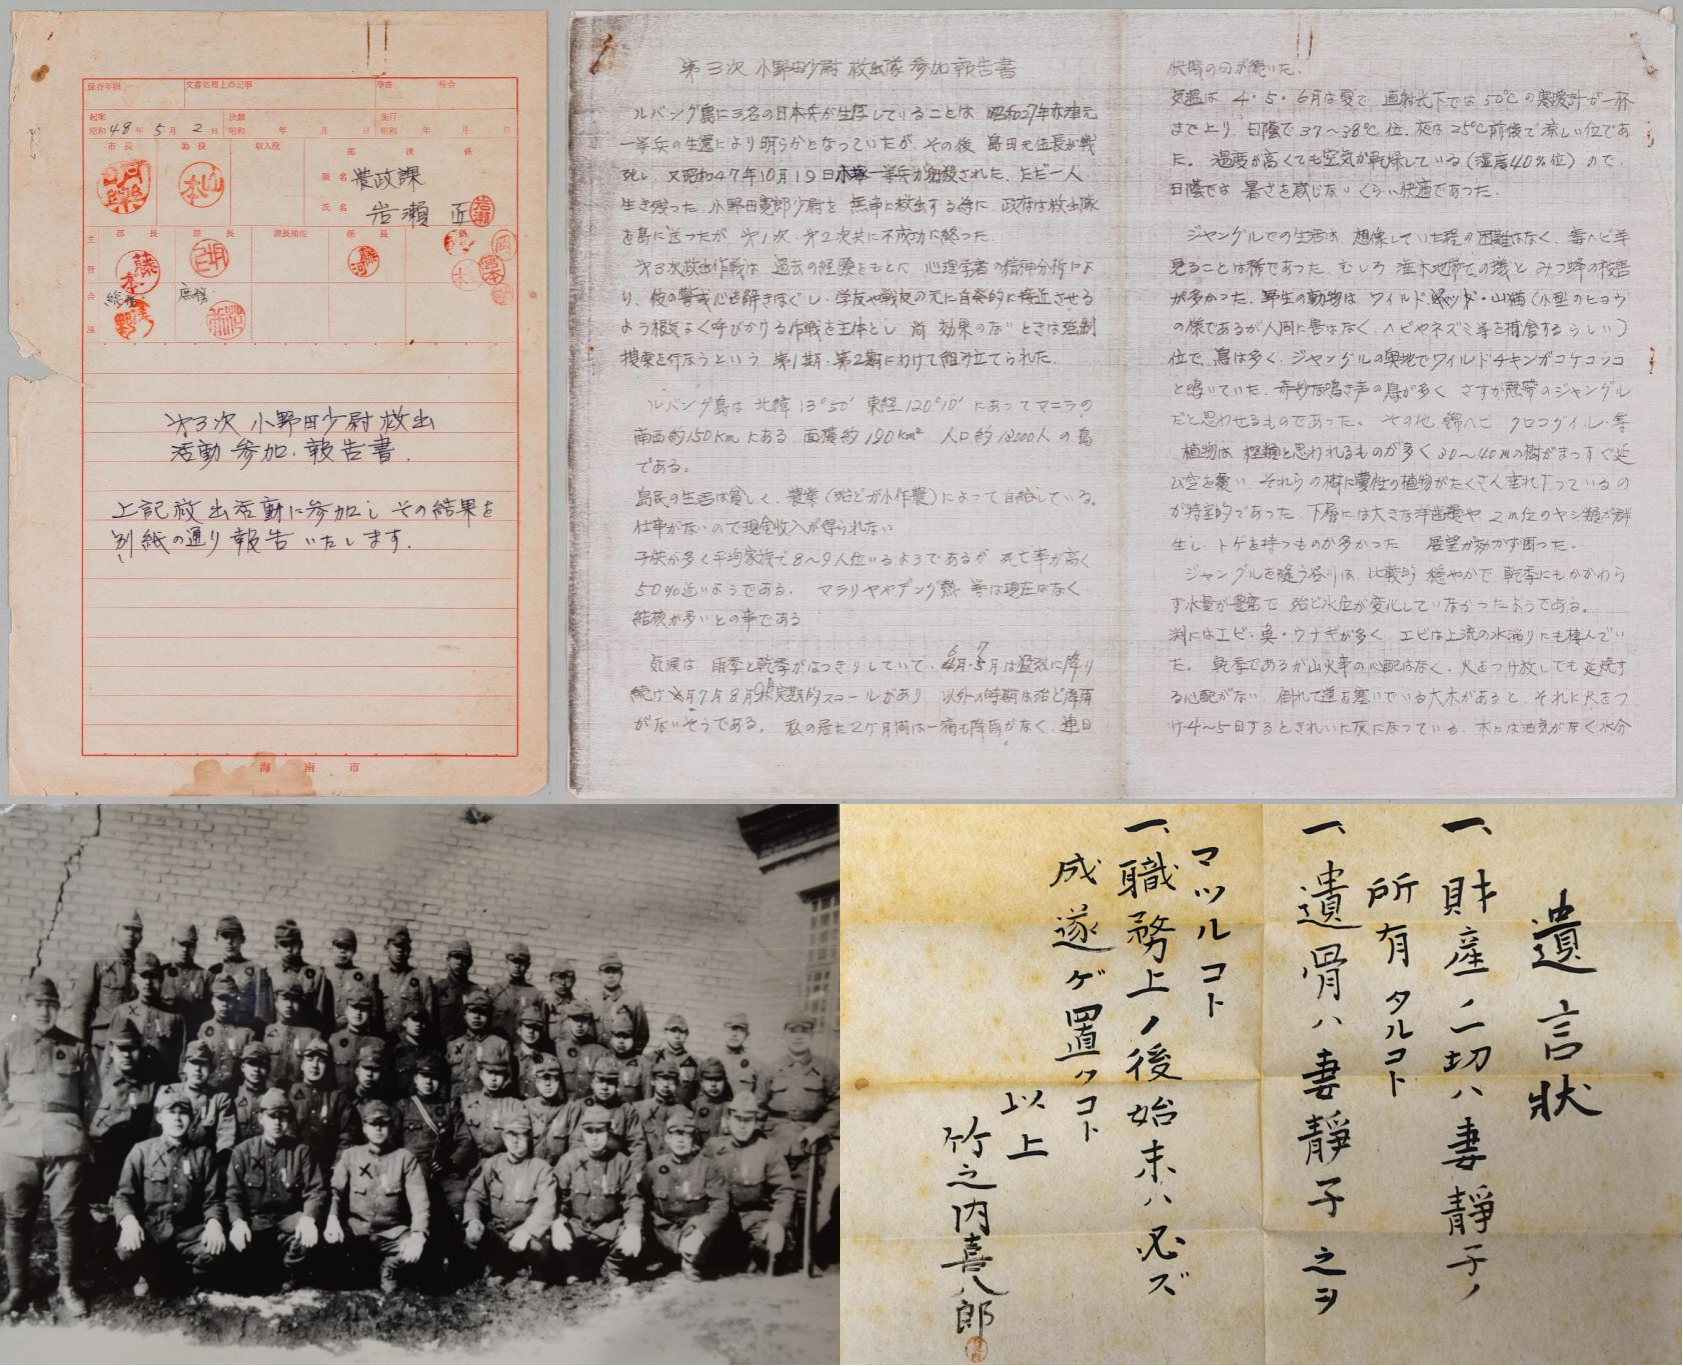 保存年限
文書処理上の記事
浄書
校合
起案
昭和48年5月2日
決裁
昭和 年 月 日
施行
昭和 年 月 日
市長
助役
収入役
部 課 係
職名 農政課
氏名 岩瀬 正
岩瀬
部長
課長
課長補佐
係長
係
主管
合議
総務
庶務
第3次 小野田少尉救出
活動参加報告書.
上記救出活動に参加しその結果を
別紙の通り報告いたします.
海南市
第3次 小野田少尉 救出隊 参加報告書
ルバング島に3名の日本兵が生存していることは 昭和27年赤津元
一等兵の生還により明らかとなっていたが、その後 島田元伍長が戦
死し、又昭和47年10月19日小塚一等兵が射殺された、ただ一人
生き残った、小野田寛郎少尉を 無事に救出する為に、政府は救出隊
を島に送ったが 第1次、第2次共に不成功に終った.
第3次救出作戦は、過去の経験をもとに 心理学者の精神分析によ
り、彼の警戒心を解きほぐし、学友や戦友の元に自発的に接近させる
よう根気よく呼びかける作戦を主体とし 尚 効果のないときは強制
捜索を行なうという 第1期・第2期にわけて組み立てられた.
ルバング島は 北緯13°50′ 東経120°10′にあってマニラの
南西約150Kmにある 面積約190Km² 人口約18000人の島
である。
島民の生活は貧しく、農業(殆どが小作農)によって自給している。
仕事がないので現金収入が得られない
子供が多く平均家族で8〜9人位いるようであるが 死亡率が高く
50%近いようである. マラリヤやデング熱 等は現在はなく
結核が多いとの事である
気候は 雨季と乾季がはっきりしていて、6月・7月は猛烈に降り
続け 7月8月9月定期的スコールがあり 以外の時期は殆ど降雨
がないそうである。 私の居た2ケ月間は一滴も降雨がなく、連日
快晴の日が続いた.
気温は 4・5・6月は夏で、直射光下では50℃の寒暖計が一杯
まで上り、日陰で37〜38℃位、夜は25℃前後で涼しい位であ
た. 温度が高くても空気が乾燥している(湿度40%位)ので、
日陰では 暑さを感じないくらい快適であった.
ジャングルでの生活は 想像していた程の困難はなく、毒ヘビ等
見ることは稀であった. むしろ 灌木地帯での蟻と みつ蜂の被害
が多かった. 野生の動物は ワイルドキャット・山猫(小型のヒョウ
の様であるが人間に害はなく、ヘビやネズミ等を捕食するらしい)
位で、鳥は多く、ジャングルの奥地でワイルドチキンがコケコッコ
と鳴いていた、奇妙な鳴き声の鳥が多く さすが熱帯のジャングル
だと思わせるものであった. その他 錦ヘビ クロコダイル・等
植物は 樫類と思われるものが多く30〜40mの樹がまっすぐ延
び空を覆い、それらの樹に蔓性の植物がたくさん垂れ下っているの
が特徴的であった、下層には大きな羊歯類や、2m位のヤシ類が群
生し、トゲを持つものが多かった 展望が効かず困った.
ジャングルを縫う谷川は、比較的 穏やかで 乾季にもかかわら
ず水量が豊富で 殆ど水位が変化していなかったようである.
渕にはエビ・魚・ウナギが多く エビは上流の水溜りにも棲んでい
た. 乾季であるが山火事の心配はなく、火をつけ放しても延焼す
る心配がない 倒れて道を塞いでいる大木があると、それに火をつ
け4〜5日するときれいた灰になっている、木には油気がなく水分
遺言状
一、財産ノ一切ハ妻靜子ノ
所有タルコト
一、遺骨ハ妻靜子之ヲ
マツルコト
一、職務上ノ後始末ハ必ズ
成遂ゲ置クコト
以上
竹之内喜八郎